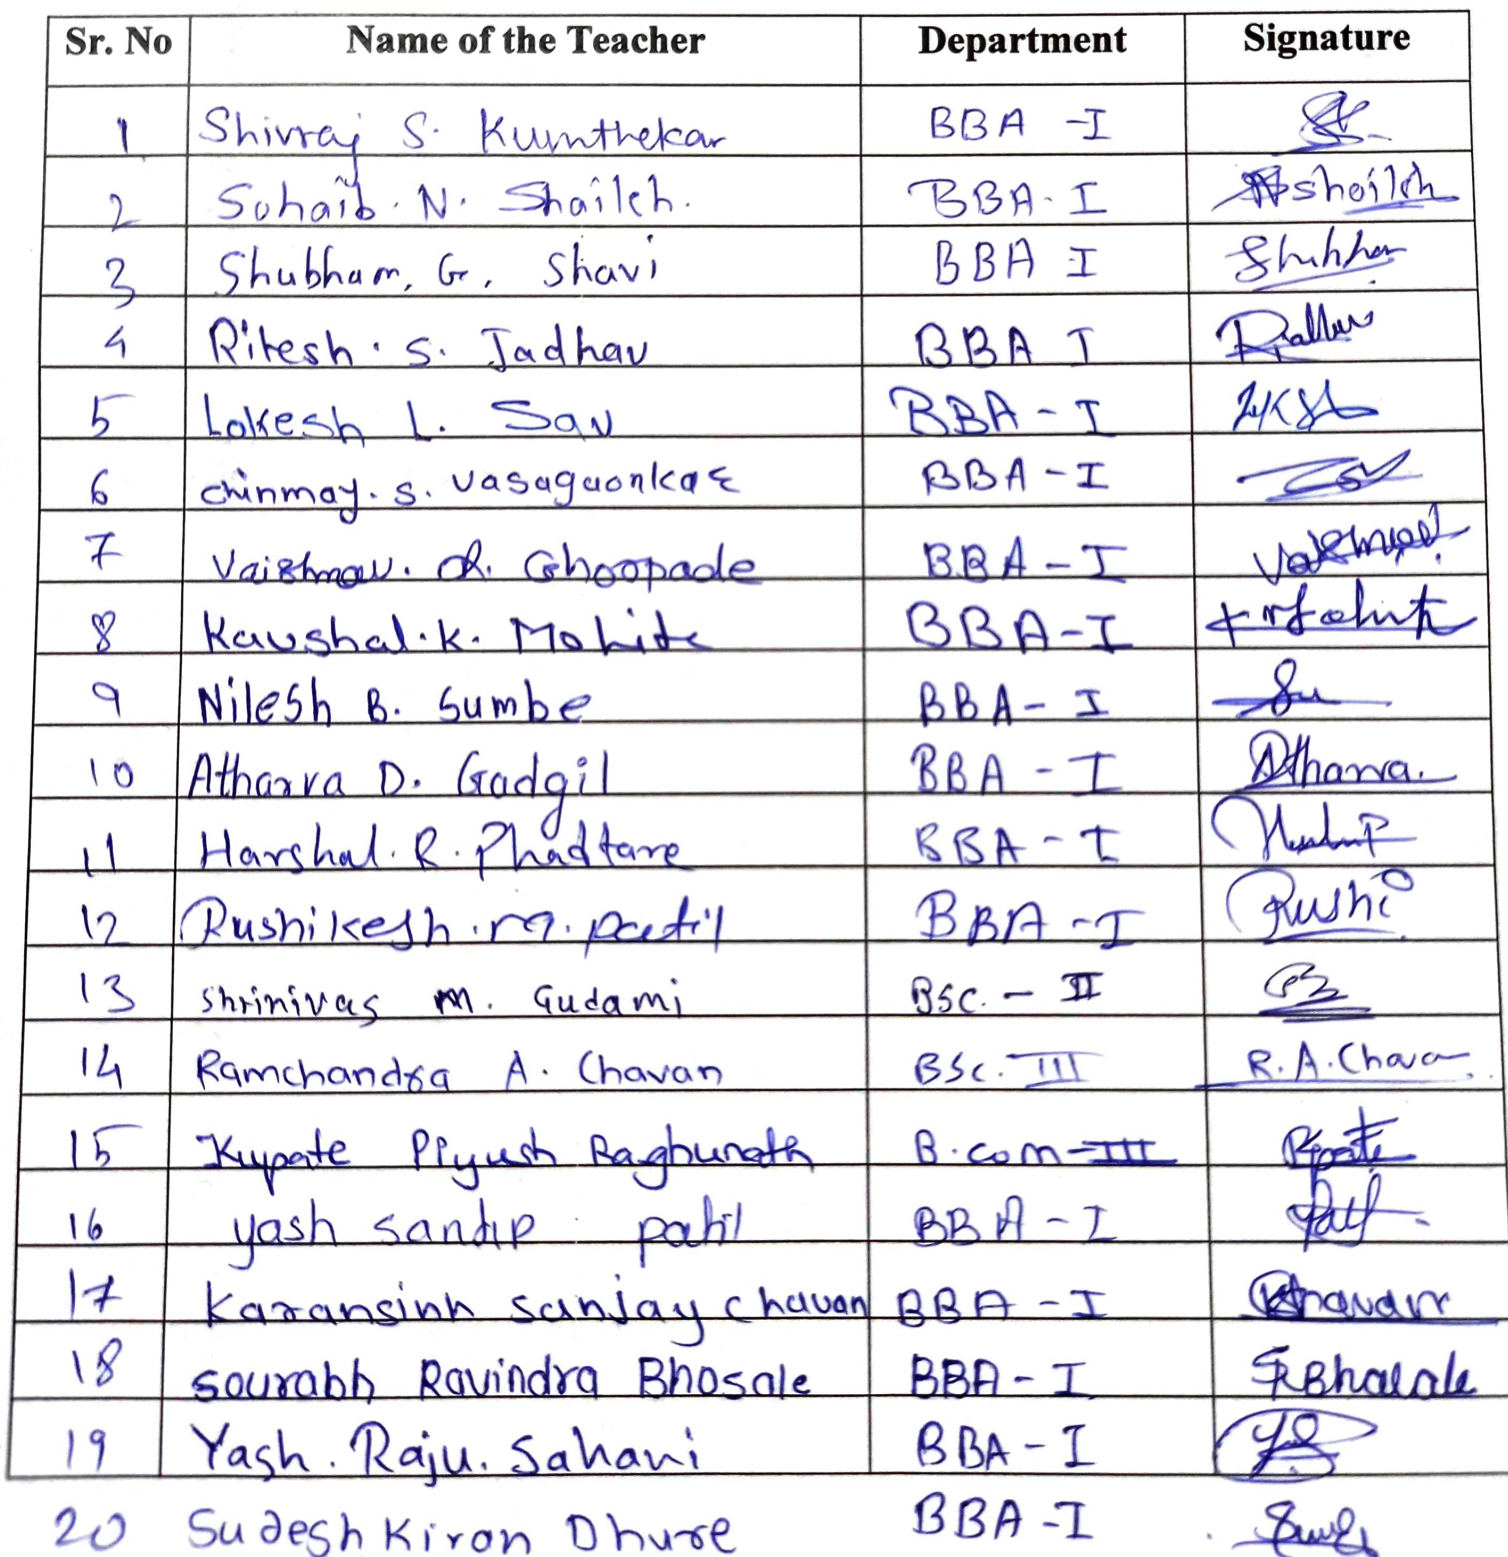 Sr. No Name of the Teacher Department Signature
1 Shivraj S. Kumthekar BBA -I
2 Suhaib. N. Shaikh. BBA- I Shaikh
3 Shubham. G. Shavi BBA I Shubham
4 Ritesh. S. Jadhav BBA I
5 Lokesh L. Sav BBA - I
6 chinmay. s. vasagaonkar BBA - I
7 Vaishnav. A. Ghoopade BBA - I
8 Kaushal. K. Mohite BBA - I
9 Nilesh B. Sumbe BBA - I
10 Atharva D. Gadgil BBA - I Atharva.
11 Harshal. R. Phadtare BBA - I
12 Rushikesh. m. patil BBA - I Rushi
13 shrinivas m. Gudami BSC. - II
14 Ramchandra A. Chavan BSc. III R. A. Chavan
15 Kupate Piyush Raghunath B.com-III Kpate
16 yash sandip patil BBA - I
17 Karansinh sanjay chavan BBA - I
18 sourabh Ravindra Bhosale BBA - I SRBhosale
19 Yash. Raju. Sahani BBA - I
20 Sudesh Kiran Dhure BBA - I